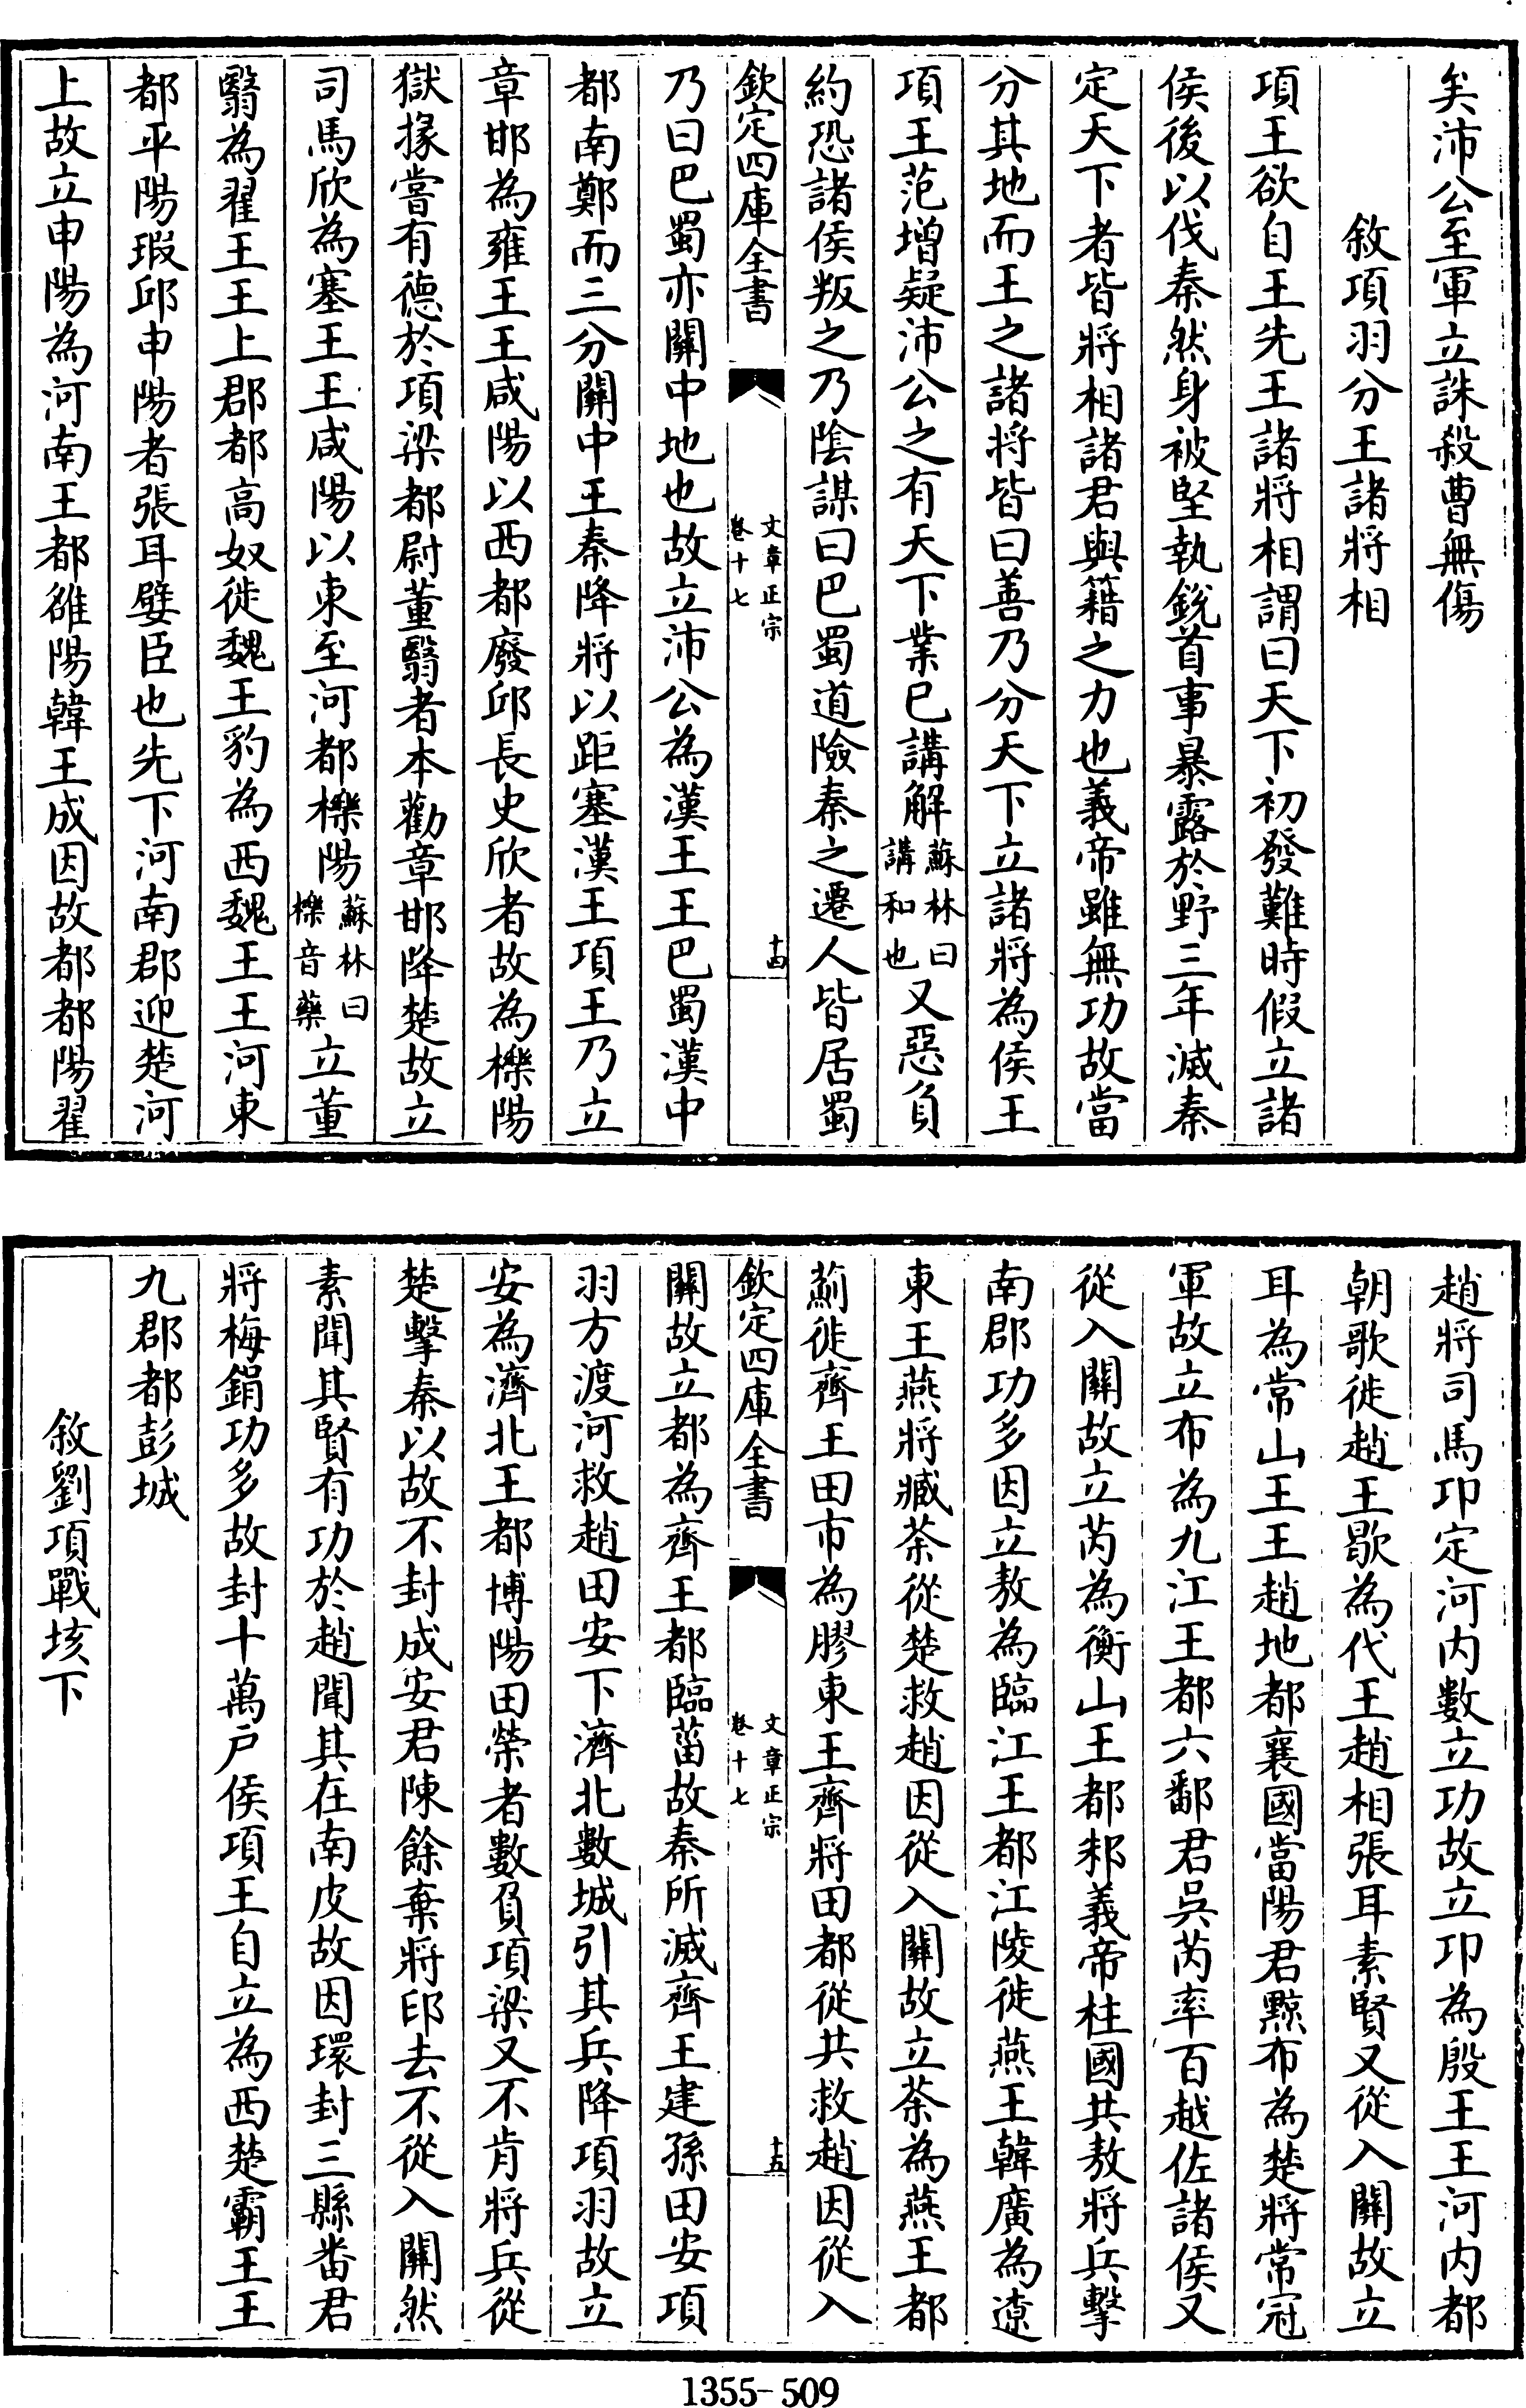 矣沛公至軍立誅殺曹無傷
敘項羽分王諸將相
項王欲自王先王諸將相謂曰天下初發難時假立諸
侯後以伐秦然身被堅執銳首事暴露於野三年滅秦
定天下者皆將相諸君與籍之力也義帝雖無功故當
分其地而王之諸將皆曰善乃分天下立諸將為侯王
項王范增疑沛公之有天下業已講解蘇林曰講和也又惡負
約恐諸侯叛之乃陰謀曰巴蜀道險秦之遷人皆居蜀
欽定四庫全書 文章正宗 卷十七 十四
乃曰巴蜀亦關中地也故立沛公為漢王王巴蜀漢中
都南鄭而三分關中王秦降將以距塞漢王項王乃立
章邯為雍王王咸陽以西都廢邱長史欣者故為櫟陽
獄掾嘗有德於項梁都尉董翳者本勸章邯降楚故立
司馬欣為塞王王咸陽以東至河都櫟陽蘇林曰櫟音藥立董
翳為翟王王上郡都高奴徙魏王豹為西魏王王河東
都平陽瑕邱申陽者張耳嬖臣也先下河南郡迎楚河
上故立申陽為河南王都雒陽韓王成因故都都陽翟
趙將司馬卬定河内數立功故立卬為殷王王河内都
朝歌徙趙王歇為代王趙相張耳素賢又從入關故立
耳為常山王王趙地都襄國當陽君黥布為楚將常冠
軍故立布為九江王都六鄱君吳芮率百越佐諸侯又
從入關故立芮為衡山王都邾義帝柱國共敖將兵擊
南郡功多因立敖為臨江王都江陵徙燕王韓廣為遼
東王燕將臧荼從楚救趙因從入關故立荼為燕王都
薊徙齊王田市為膠東王齊將田都從共救趙因從入
欽定四庫全書 文章正宗 卷十七 十五
關故立都為齊王都臨菑故秦所滅齊王建孫田安項
羽方渡河救趙田安下濟北數城引其兵降項羽故立
安為濟北王都博陽田榮者數負項梁又不肯將兵從
楚擊秦以故不封成安君陳餘棄將印去不從入關然
素聞其賢有功於趙聞其在南皮故因環封三縣番君
將梅鋗功多故封十萬戶侯項王自立為西楚霸王王
九郡都彭城
敘劉項戰垓下
1355-509